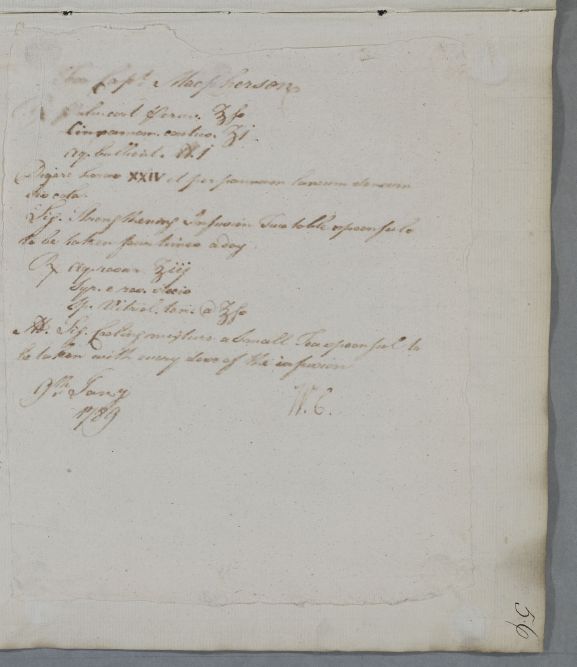 For Capt. Macpherson
℞ Pulv. cort. Peruv. ℥ſs
Cinnamom. contus. ʒi
aq. bullient. ℔ j
Digere horas XXIV et per pannum
Sig. Strengthening Infusion Two table spoonfuls
to be taken four times a day
℞ aq. rosar. ℥iij
Syr. e ros.
Sp. Vitriol. ten. a ʒſs
M. Sig. Cooling mixture a Small Tea spoonful to
be taken with every dose of the infusion
9th Jany
1789
W. C.
59